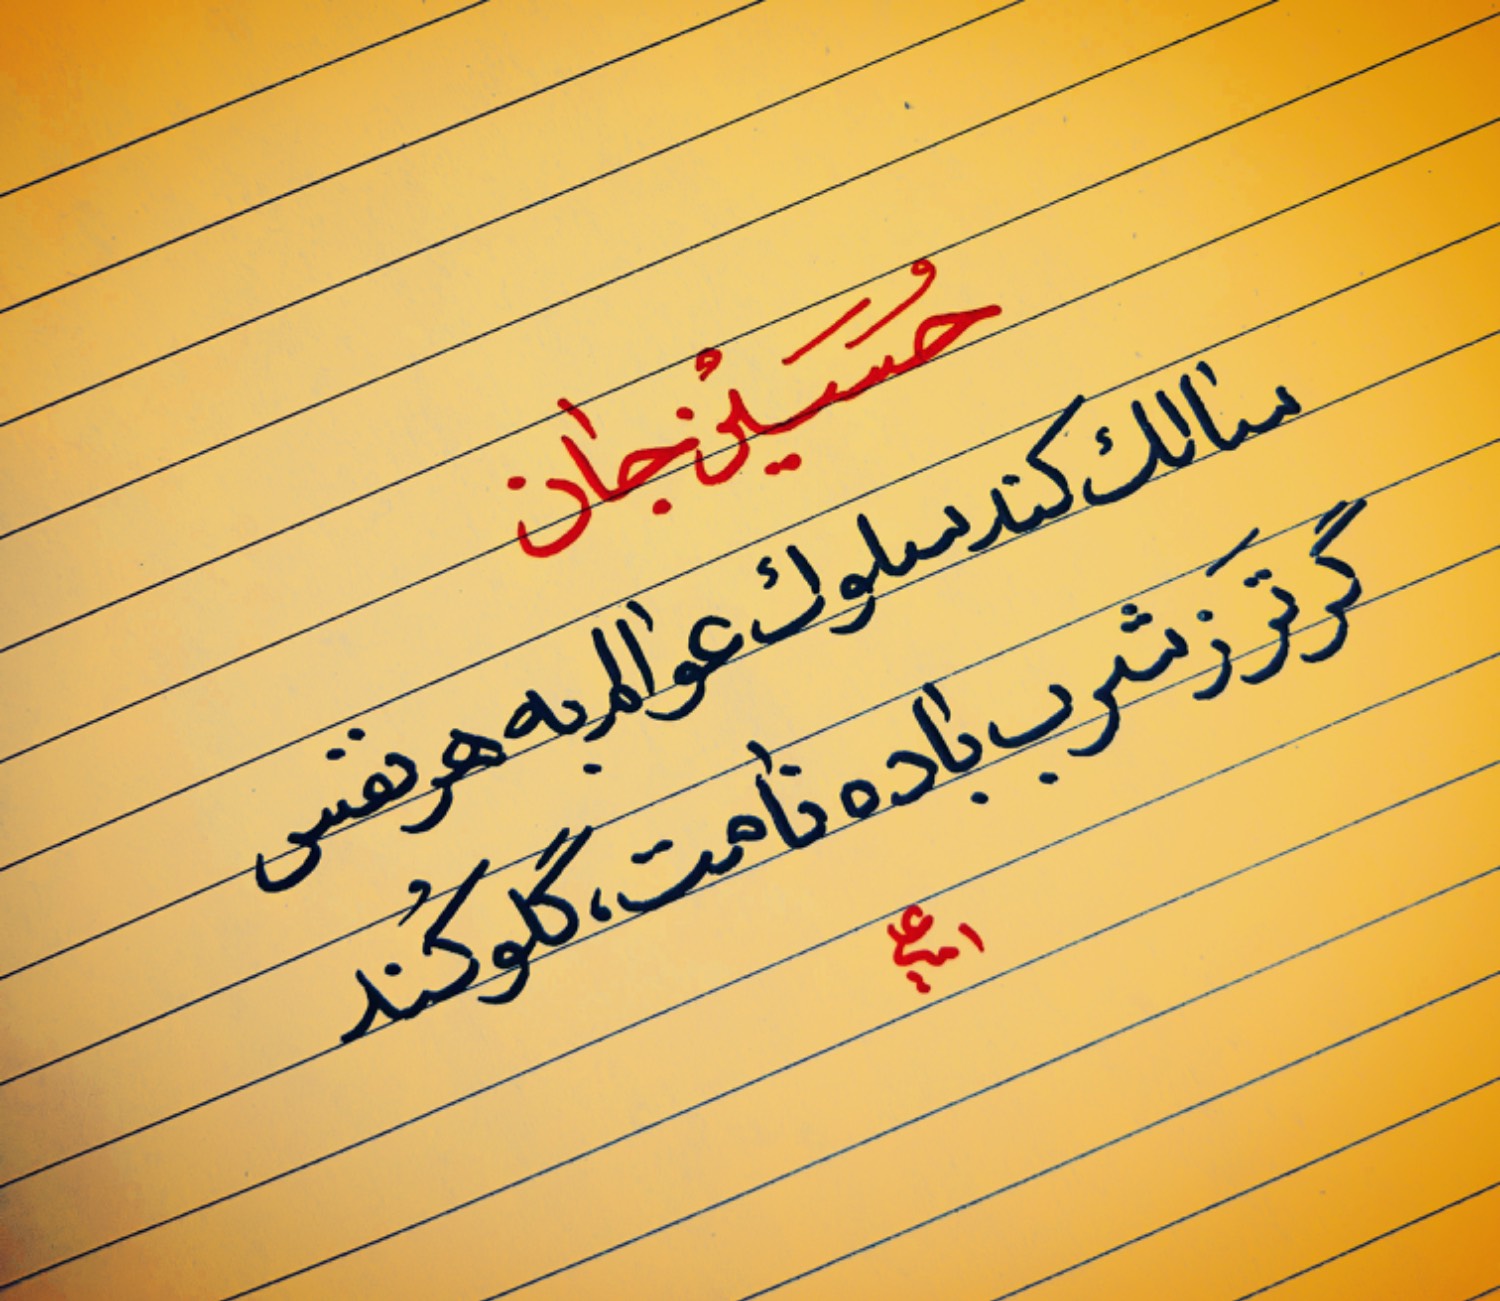 حُسَیْن جان
سالک کند سلوک عوالم به هر نفس
گر تَر ز شرب باده نامت، گلو کُند